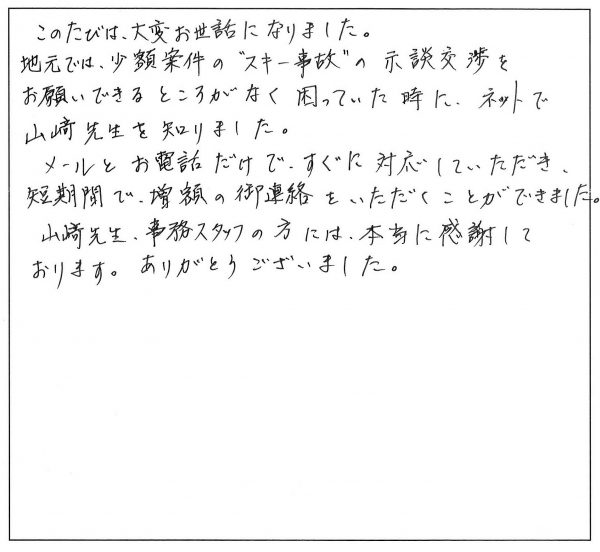 このたびは、大変お世話になりました。
地元では、少額案件の"スキー事故"の示談交渉を
お願いできるところがなく困っていた時に、ネットで
山﨑先生を知りました。
メールとお電話だけで、すぐに対応していただき、
短期間で、増額の御連絡をいただくことができました。
山﨑先生、事務スタッフの方には、本当に感謝して
おります。ありがとうございました。